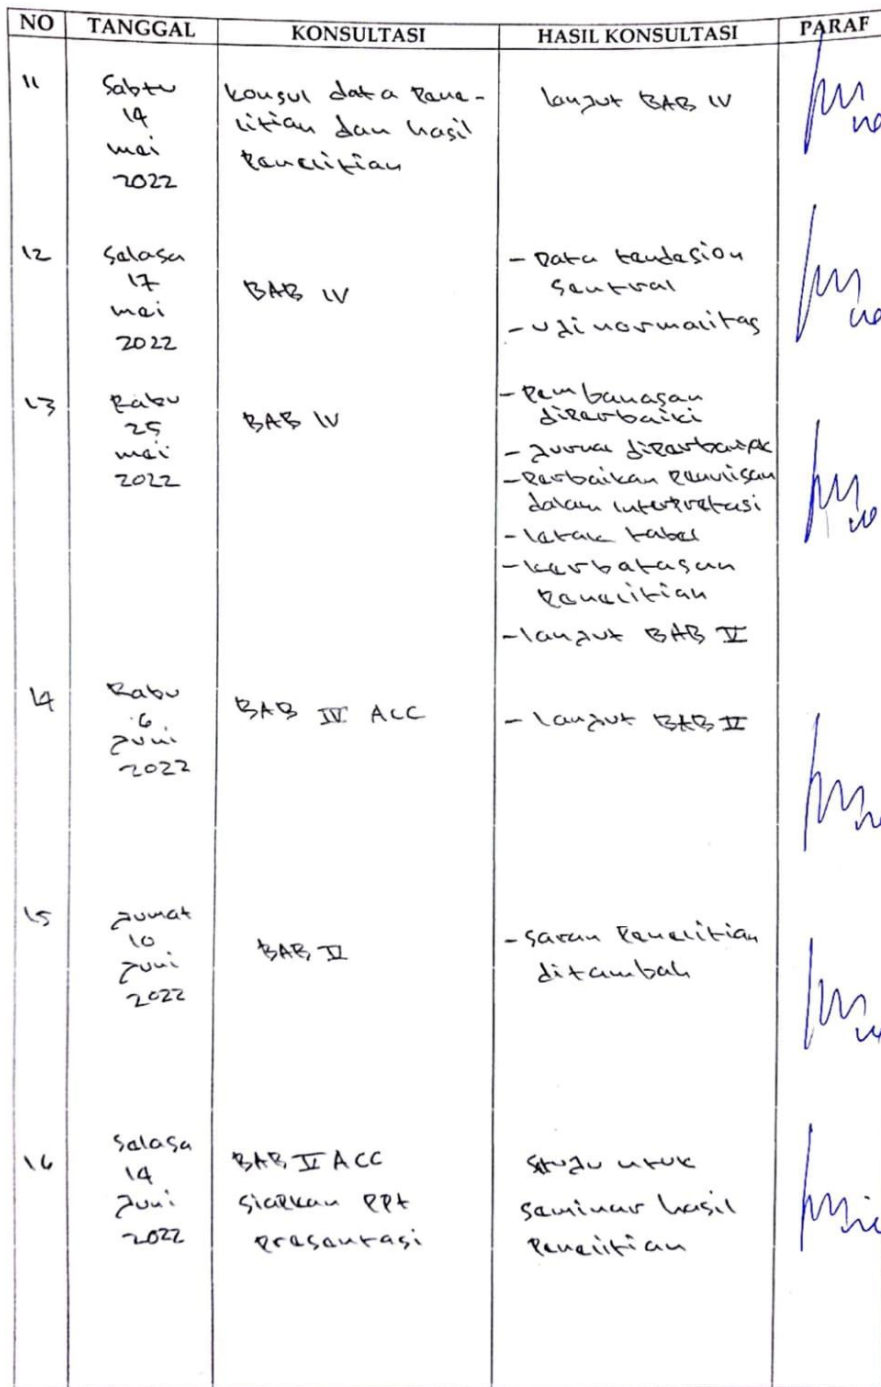 NO TANGGAL KONSULTASI HASIL KONSULTASI PARAF
11
Sabtu
14
mei
2022
konsul data Pene-
litian dan hasil
Penelitian
lanjut BAB IV
12
Selasa
17
mei
2022
BAB IV
- Data tendasion
Sentral
- Uji normalitas
13
Rabu
25
mei
2022
BAB IV
- Pembahasan
diperbaiki
- Jurnal diperbaiki
- Perbaikan Penulisan
dalam interpretasi
- letak tabel
- keterbatasan
Penelitian
- lanjut BAB V
14
Rabu
6
Juni
2022
BAB IV ACC
- lanjut BAB V
15
Jumat
10
Juni
2022
BAB V
- Saran Penelitian
ditambah
16
Selasa
14
Juni
2022
BAB V ACC
Siapkan PPt
Presentasi
Setuju untuk
Seminar hasil
Penelitian